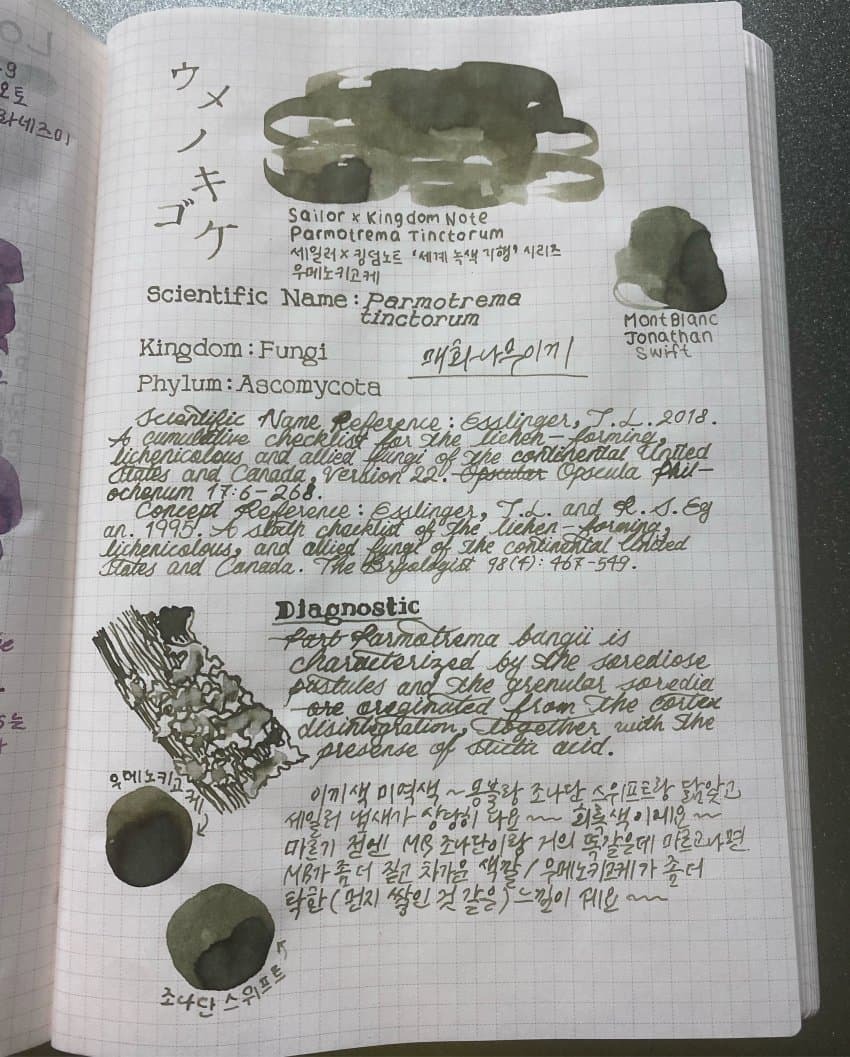 ウメノキ
ゴケ
Sailor x Kingdom Note
Parmotrema Tinctorum
세일러 x 킹덤노트 '세계 녹색 기행' 시리즈
우메노키고케
MontBlanc
Jonathan
Swift
Scientific Name: Parmotrema
tinctorum
Kingdom: Fungi
매화나무이끼
Phylum: Ascomycota
Scientific Name Reference: Esslinger, T. L. 2018.
A cumulative checklist for the lichen-forming,
lichenicolous and allied fungi of the continental United
States and Canada, Version 22. Opscular Opscula Phil-
ochenum 17:6-268.
Concept Reference: Esslinger, T.L. and R. S. Eg
an. 1995. A sixth checklist of the lichen-forming,
lichenicolous, and allied fungi of the continental United
States and Canada. The Bryologist 98(4): 467-549.
Diagnostic
Part Parmotrema bangii is
characterized by the sorediose
pustules and the grenular soredia
are oreginated from the cortex
disintegration, together with the
presense of stictic acid.
우메노키고케
이끼색 미역색 ~ 몽블랑 조나단 스위프트랑 닮았고
세일러 냄새가 상당히 나요 ~~ 회록색이에요 ~
마르기 전엔 MB 조나단이랑 거의 똑같은데 마르고나면
MB가 좀 더 짙고 차가운 색깔 / 우메노키고케가 좀 더
탁한 (먼지 쌓인 것 같은) 느낌이 예요 ~~
조나단 스위프트
오토
라네즈미